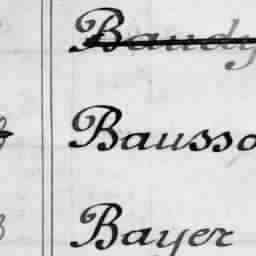 Baudy
Bausso
Bayer